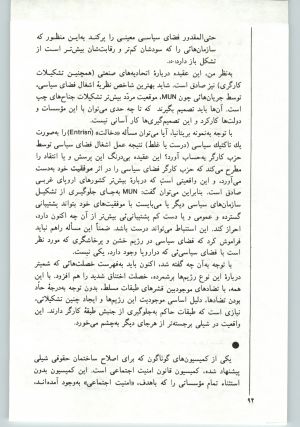 حتی‌المقدور فضای سیاسی معینی را پرکند به‌این منظور که
سازمان‌هائی را که سودشان کم‌تر و رقابت‌شان بیش‌تر است از
تشکل باز دارد؛؛.
به‌نظر من، این عقیده دربارهٔ اتحادیه‌های صنعتی (همچنین تشکیلات
کارگری) نیز صادق است. شاید بهترین شاخص نظریهٔ اشغال فضای سیاسی،
توسط جریان‌هائی چون MUN، موقعیت مردد بیش‌تر تشکیلات جناح‌های چپ
است. آن‌ها باید تصمیم بگیرند که تا چه حدی می‌توان با این تشکیلات
دولت‌ها کارکرد و این تصمیم‌گیری‌ها کار آسانی نیست.
با توجه به‌نمونه بریتانیا، آیا می‌توان مسأله «دخالت» (Entrism) را به‌صورت
یك تاکتیك سیاسی (درست یا غلط) نتیجه عمل اشغال فضای سیاسی توسط
حزب کارگر به‌حساب آورد؟ این عقیده بی‌درنگ این پرسش و یا انتقاد را
مطرح می‌کند که حزب کارگر فضای سیاسی را در اثر موفقیت خود به‌دست
می‌آورد، و این واقعیتی است که دربارهٔ بیش‌تر کشورهای اروپای غربی
صادق است. بنابراین می‌توان گفت: MUN به‌جای جلوگیری از تشکیل
سازمان‌های سیاسی دیگر یا می‌بایست با موفقیت‌های خود بتواند پشتیبانی
گسترده و عمومی و یا دست کم پشتیبانی‌ئی بیش‌تر از آن چه اکنون دارد،
احراز کند. این استنباط می‌تواند درست باشد. ضمناً این مسأله راهم نباید
فراموش کرد که فضای سیاسی در رژیم خشن و پرخاشگری که مورد نظر
است با فضای سیاسی‌ئی که در اروپا وجود دارد، یکی نیست.
با توجه به‌آن چه گفته شد، اکنون باید به‌فهرست خصلت‌هائی که شمیتر
دربارهٔ این نوع رژیم‌ها برشمرده، خصلت اختناق شدید را هم افزود. با این
همه، با تضادهای موجودبین قشرهای طبقات مسلط، بدون توجه به‌درجهٔ حاد
بودن تضادها، دلیل اساسی موجودیت این رژیم‌ها و ایجاد چنین تشکیلاتی،
نیازی است که طبقات حاکم به‌جلوگیری از جنبش طبقهٔ کارگر دارند. این
واقعیت در شیلی برجسته‌تر از هرجای دیگر به‌چشم می‌خورد.
●
یکی از کمیسیون‌های گوناگون که برای اصلاح ساختمان حقوقی شیلی
پیشنهاد شده، کمیسیون قانون امنیت اجتماعی است. این کمیسیون بدون
استثناء تمام مؤسساتی را که باهدف، «امنیت اجتماعی» به‌وجود آمده‌اند،
۹۲